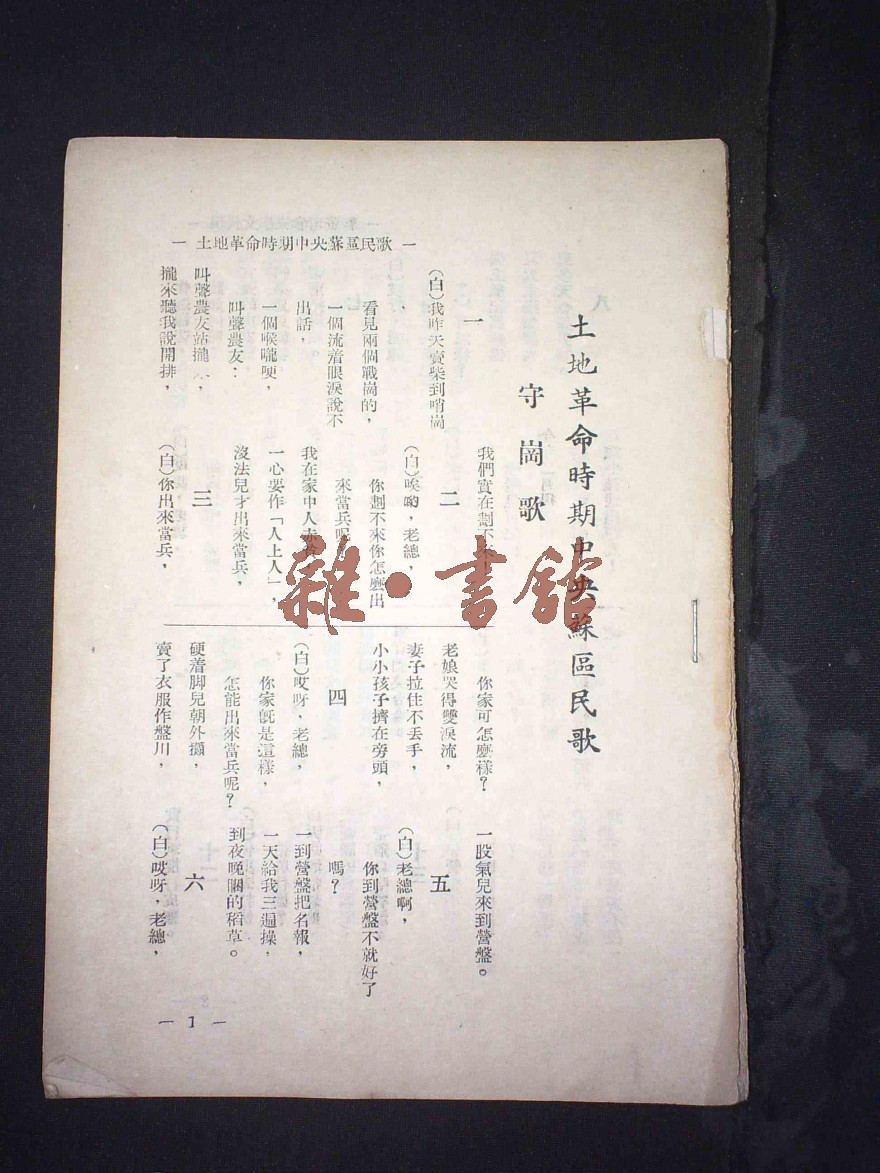 — 土地革命時期中央蘇區民歌 —
土地革命時期中央蘇區民歌
守崗歌
一
(白)我昨天賣柴到哨崗
、看見兩個戰崗的，
一個流着眼淚說不
出話，
一個喉嚨哽，
叫聲農友：
叫聲農友站攏
攏來聽我說開排，
我們實在劃不來
二
(白)唉喲，老總，
你劃不來你怎麽出
來當兵呢
我在家中人赤
一心要作「人上人」，
沒法兒才出來當兵，
三
(白)你出來當兵，
你家可怎麽樣？
老娘哭得雙淚流，
妻子拉住不丟手，
小小孩子擠在旁頭，
四
(白)哎呀，老總，
你家旣是這樣，
怎能出來當兵呢？
硬着脚兒朝外攧，
賣了衣服作盤川，
一股氣兒來到營盤。
五
(白)老總啊，
你到營盤不就好了
嗎？
一到營盤把名報，
一天給我三遍操，
到夜晚睏的稻草。
六
(白)哎呀，老總，
— 1 —
雜·書館